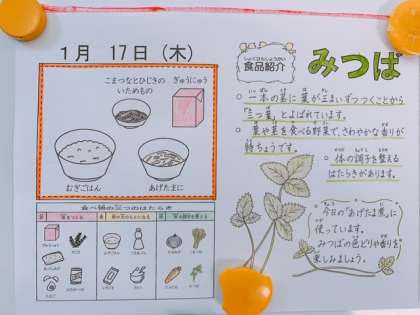 1月 17日（木）
こまつなとひじきの
いためもの
ぎゅうにゅう
むぎごはん
あげたまに
食べ物の三つのはたらき
しょくひんしょうかい
食品紹介
みつば
○ 一本の茎に葉が三まいずつつくことから
「三つ葉」とよばれています。
○ 葉や茎を食べる野菜で、さわやかな香りが
特ちょうです。
○ 体の調子を整える
はたらきがあります。
今日の「あげたま煮」に
使っています。
みつばの色どりや香りを
楽しみましょう。